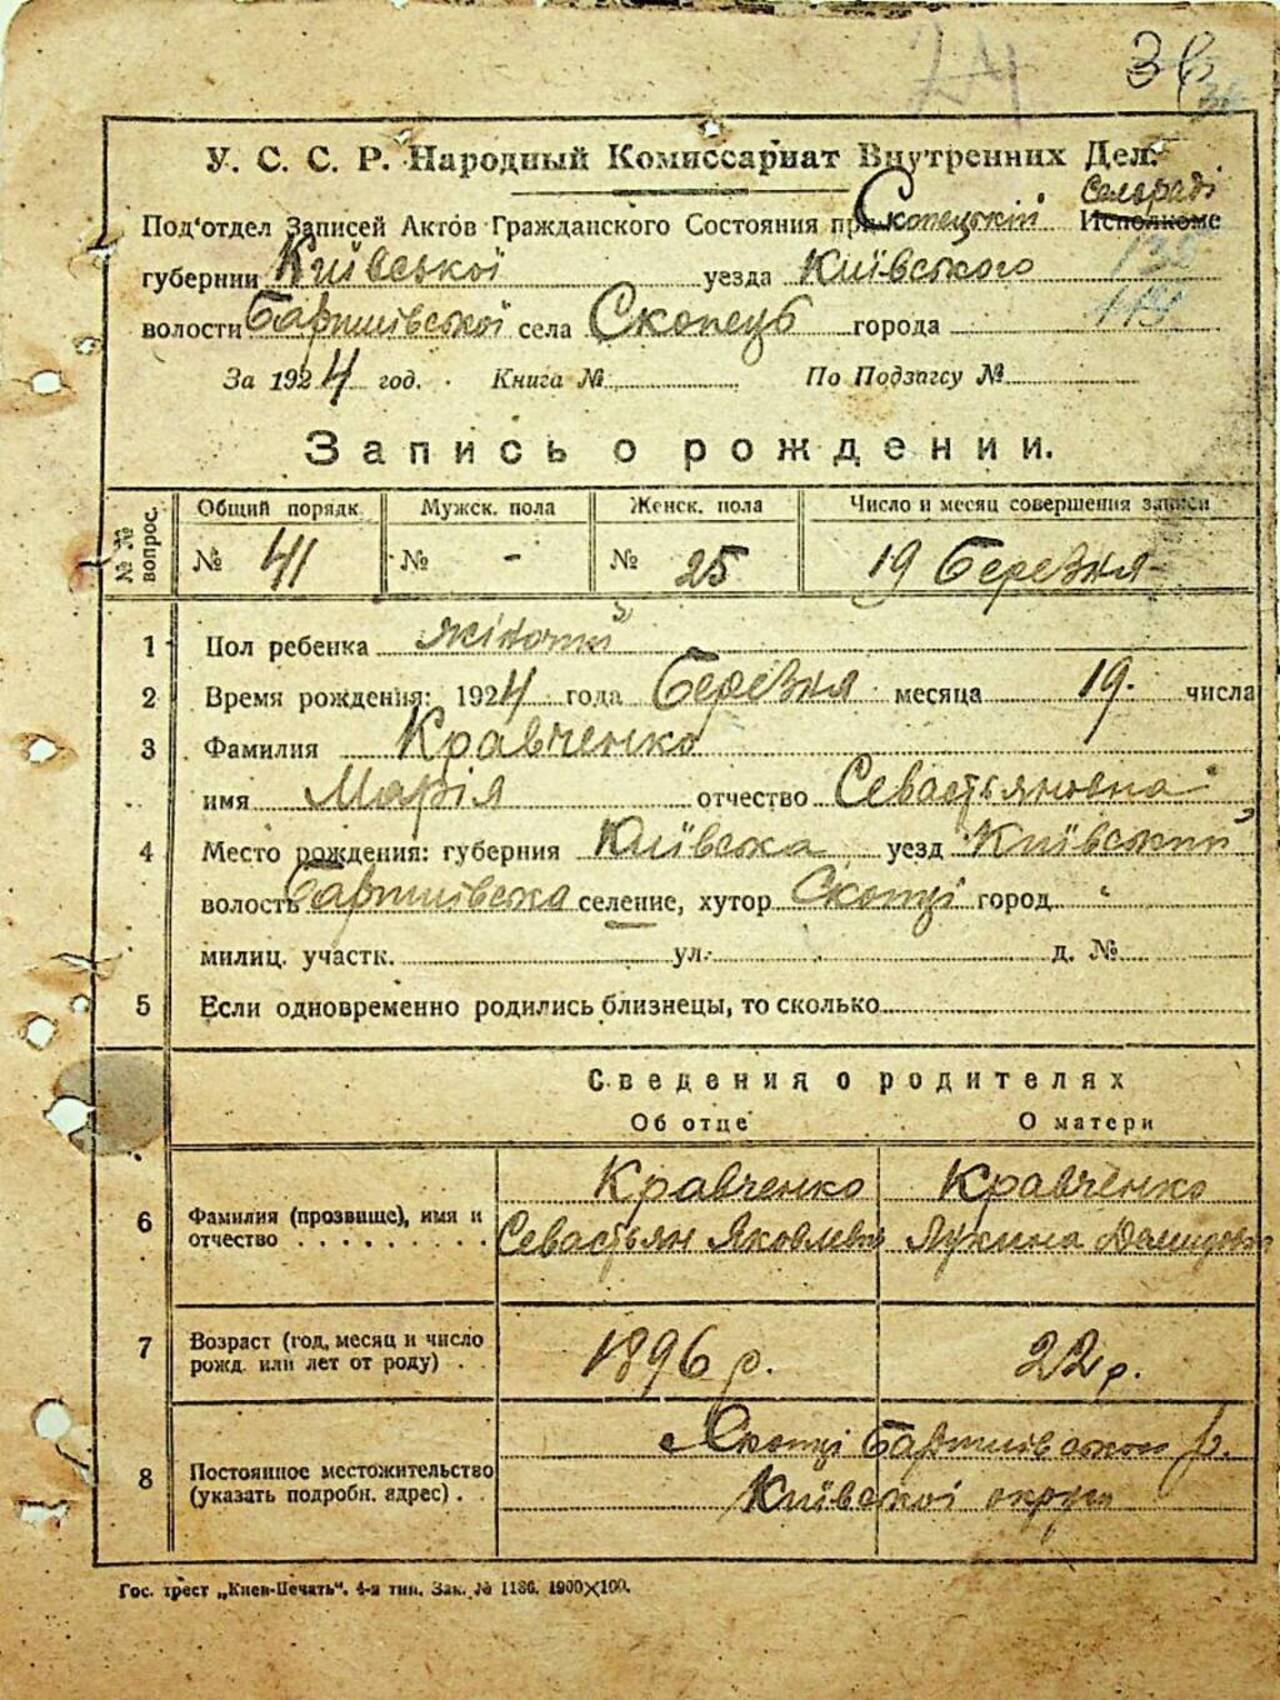 36
У. С. С. Р. Народный Комиссариат Внутренних Дел.
Под'отдел Записей Актов Гражданского Состояния при Скопецькій Сельраді Исполкоме
губернии Київської уезда Київського 135
волости Баришівської села Скопець города 113
За 1924 год. Книга № По Подзагсу №
Запись о рождении.
№ № вопрос. Общий порядк. Мужск. пола Женск. пола Число и месяц совершения записи
№ 41 № - № 25 19 Березня
1 Пол ребенка жіночий
2 Время рождения: 1924 года Березня месяца 19. числа
3 Фамилия Кравченко
имя Марія отчество Севастьяновна
4 Место рождения: губерния Київська уезд Київський
волость Баришівска селение, хутор Скопці город "
милиц. участк. ул. д. №
5 Если одновременно родились близнецы, то сколько
Сведения о родителях
Об отце О матери
Кравченко Кравченко
6 Фамилия (прозвище), имя и отчество Севастьян Яковлевич Лукина Демидовна
7 Возраст (год, месяц и число рожд. или лет от роду) 1896 р. 22 р.
Скопці Баришівского р.
8 Постоянное местожительство (указать подробн. адрес) Київскої округи
Гос. трест „Киев-Печать". 4-я тип. Зак. № 1186. 1900×100.